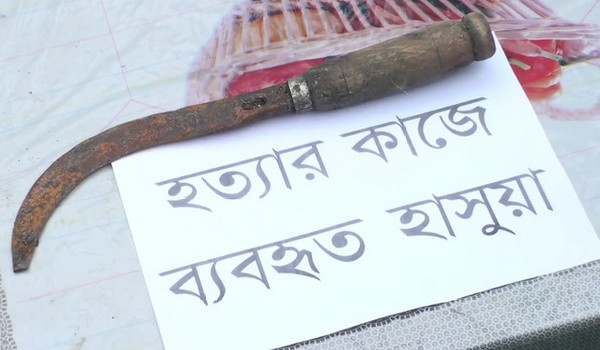 হত্যার কাজে
ব্যবহৃত হাসুয়া